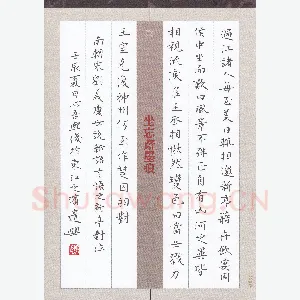 過江諸人每至美日輒相邀新亭藉卉飲宴周
侯中坐而歎曰風景不殊正自有山河之異皆
相視流淚唯王丞相愀然變色曰當共戮力
坐忘齋墨痕
王室克復神州何至作楚囚相對
南朝宋劉義慶世說新語言語新亭對泣
壬辰夏日於東江之濱
Shufawang.CN